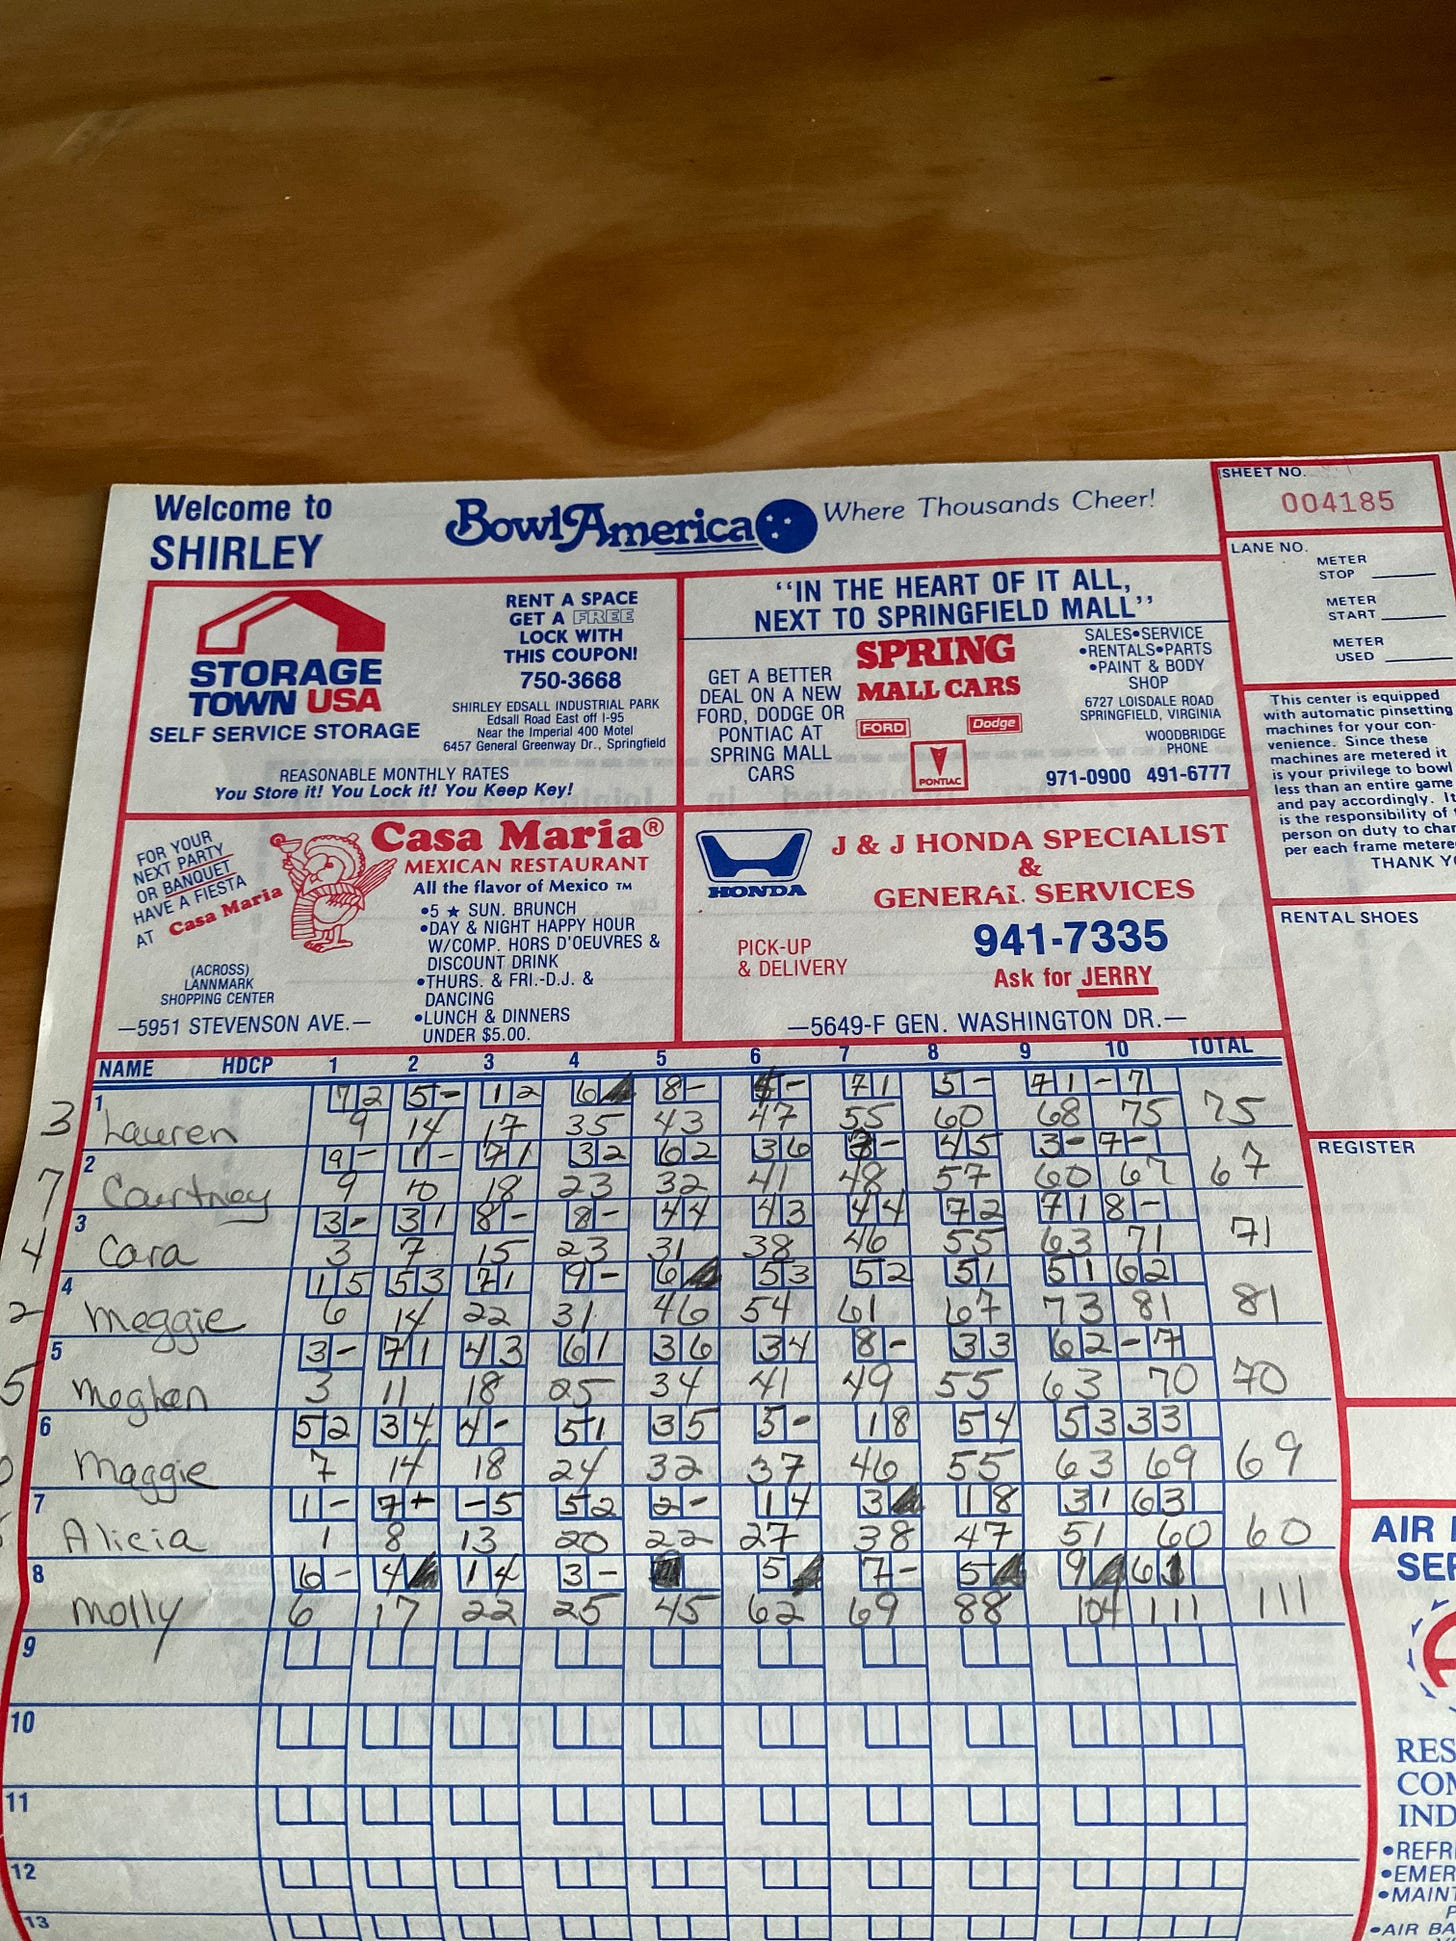 Welcome to
SHIRLEY
BowlAmerica
Where Thousands Cheer!
SHEET NO.
004185
LANE NO.
METER
STOP
METER
START
METER
USED
STORAGE
TOWN USA
SELF SERVICE STORAGE
RENT A SPACE
GET A FREE
LOCK WITH
THIS COUPON!
750-3668
SHIRLEY EDSALL INDUSTRIAL PARK
Edsall Road East off I-95
Near the Imperial 400 Motel
6457 General Greenway Dr., Springfield
REASONABLE MONTHLY RATES
You Store it! You Lock it! You Keep Key!
"IN THE HEART OF IT ALL,
NEXT TO SPRINGFIELD MALL"
GET A BETTER
DEAL ON A NEW
FORD, DODGE OR
PONTIAC AT
SPRING MALL
CARS
SPRING
MALL CARS
FORD
Dodge
PONTIAC
SALES•SERVICE
•RENTALS•PARTS
•PAINT & BODY
SHOP
6727 LOISDALE ROAD
SPRINGFIELD, VIRGINIA
WOODBRIDGE
PHONE
971-0900 491-6777
This center is equipped
with automatic pinsetting
machines for your con-
venience. Since these
machines are metered it
is your privilege to bowl
less than an entire game
and pay accordingly. It
is the responsibility of
person on duty to
per each frame
THANK
FOR YOUR
NEXT PARTY
OR BANQUET
HAVE A FIESTA
AT Casa Maria
(ACROSS)
LANNMARK
SHOPPING CENTER
Casa Maria®
MEXICAN RESTAURANT
All the flavor of Mexico ™
•5 ★ SUN. BRUNCH
•DAY & NIGHT HAPPY HOUR
W/COMP. HORS D'OEUVRES &
DISCOUNT DRINK
•THURS. & FRI.-D.J. &
DANCING
•LUNCH & DINNERS
UNDER $5.00.
—5951 STEVENSON AVE.—
HONDA
J & J HONDA SPECIALIST
&
GENERAL SERVICES
941-7335
PICK-UP
& DELIVERY
Ask for JERRY
—5649-F GEN. WASHINGTON DR.—
RENTAL SHOES
REGISTER
NAME HDCP 1 2 3 4 5 6 7 8 9 10 TOTAL
1 7 2 5 - 1 2 6 8 - - 7 1 5 - 7 1 - 7
3 Lauren 9 14 17 35 43 47 55 60 68 75 75
2 9 - 1 - 7 1 3 2 6 2 3 6 - 4 5 3 - 7 -
7 Courtney 9 10 18 23 32 41 48 57 60 67 67
3 3 - 3 1 8 - 8 - 4 4 4 3 4 4 7 2 7 1 8 -
4 Cara 3 7 15 23 31 38 46 55 63 71 71
4 1 5 5 3 7 1 9 - 6 5 3 5 2 5 1 5 1 6 2
2 Meggie 6 14 22 31 46 54 61 67 73 81 81
5 3 - 7 1 4 3 6 1 3 6 3 4 8 - 3 3 6 2 - 7
5 Meghan 3 11 18 25 34 41 49 55 63 70 70
6 5 2 3 4 4 - 5 1 3 5 5 - 1 8 5 4 5 3 3 3
Maggie 7 14 18 24 32 37 46 55 63 69 69
7 1 - 7 - - 5 5 2 2 - 1 4 3 1 8 3 1 6 3
Alicia 1 8 13 20 22 27 38 47 51 60 60
8 6 - 4 1 4 3 - 5 7 - 5 9 6 1
Molly 6 17 22 25 45 62 69 88 104 111 111
9
10
11
12
13
AIR
RES
COM
IND
•REFR
•EMER
•MAINT
•AIR BA